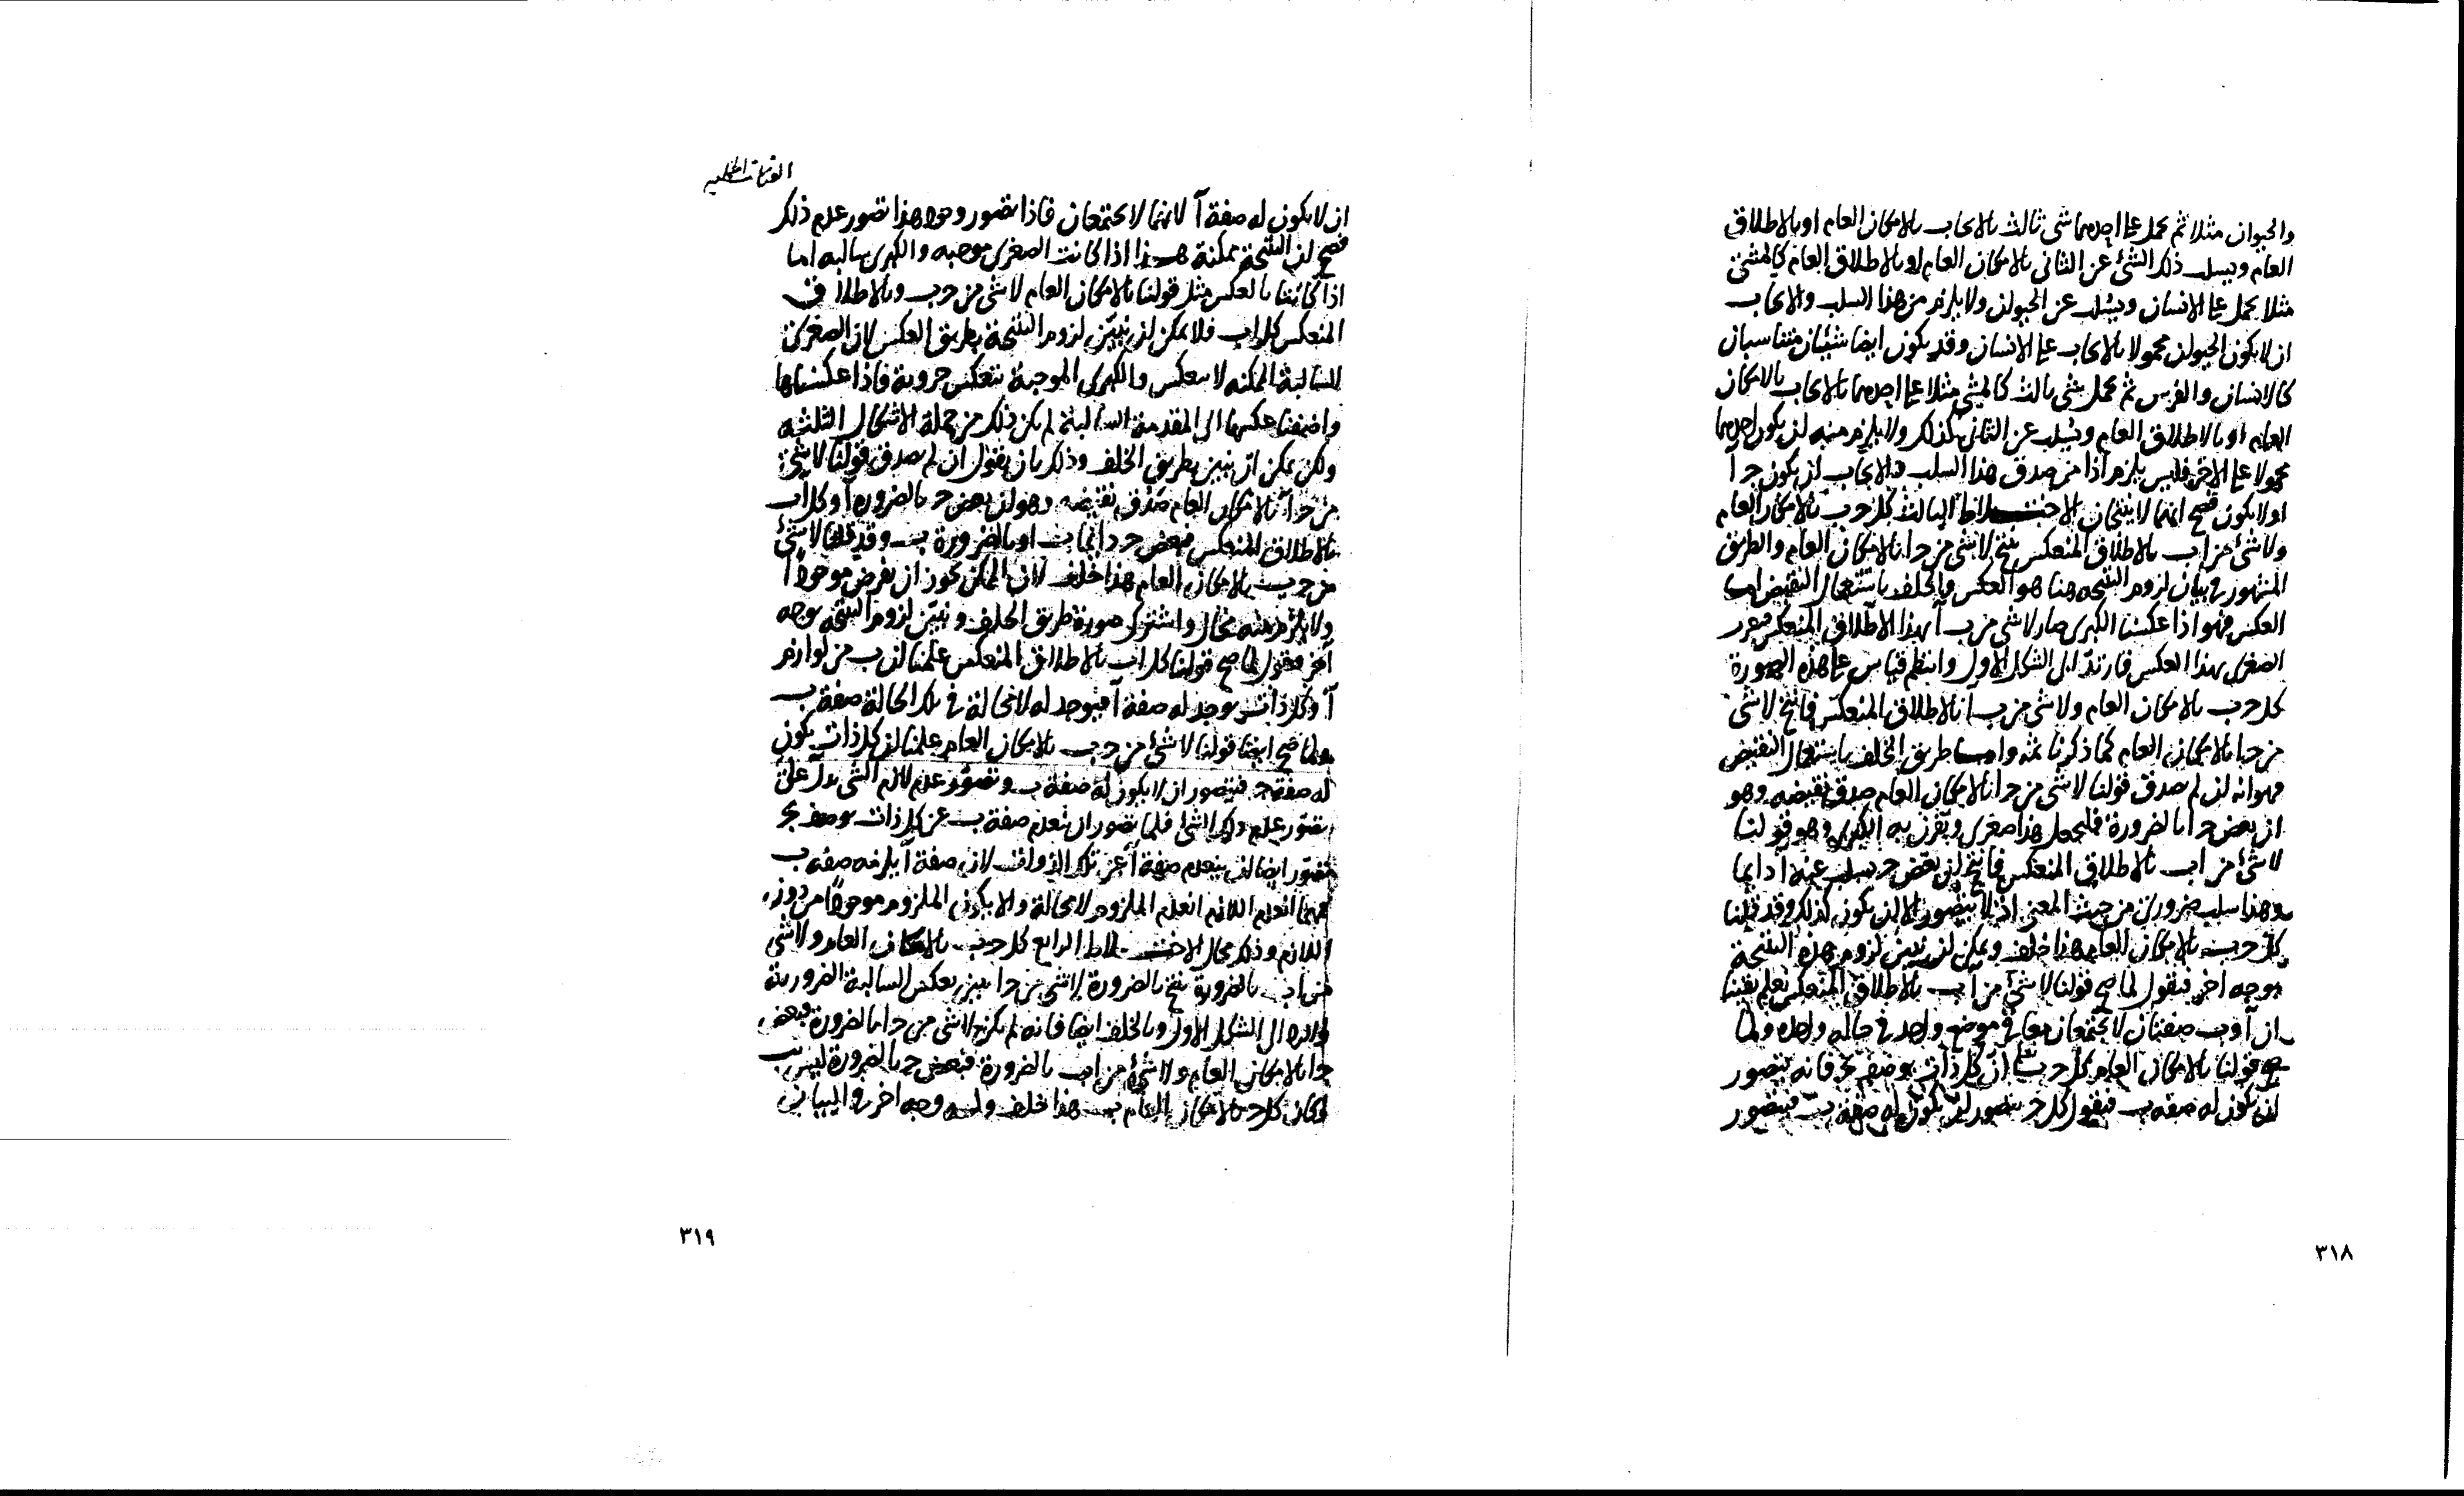 والحيوان مثلا ثم يحمل على احدهما شي ثالث بالايجاب بالامكان العام او بالاطلاق
العام ويسلب ذلك الشئ عن الثاني بالامكان العام او بالاطلاق العام كالمشي
مثلا يحمل على الانسان ويسلب عن الحيوان ولا يلزم من هذا السلب والايجاب
ان لا يكون الحيوان محمولا بالايجاب على الانسان وقد يكون ايضا شيئان متناسبان
كالانسان والفرس ثم يحمل شي ثالث كالمشي مثلا على احدهما بالايجاب بالامكان
العام او بالاطلاق العام ويسلب عن الثاني كذلك ولا يلزم منه ان يكون احدهما
محمولا على الاخر فليس يلزم اذا من صدق هذا السلب والايجاب ان يكون ج آ
او لا يكون فصح انهما لا ينتجان الاختلاط الثالث كل ج ب بالامكان العام
ولا شئ من اب بالاطلاق المنعكس ينتج لا شي من ج ا بالامكان العام والطريق
المشهور في بيان لزوم النتيجه هنا هو العكس والخلف باستعمال النقيض اما
العكس فهو اذا عكسنا الكبرى صار لا شي من ب آ بهذا الاطلاق المنعكس
الصغرى بهذا العكس فارتد الى الشكل الاول وانتظم قياس على هذه الصورة
كل ج ب بالامكان العام ولا شي من ب آ بالاطلاق المنعكس فانتج لا شئ
من ج ا بالامكان العام كما ذكرنا ثمه واما طريق الخلف باستعمال النقيض
فهو انه ان لم يصدق قولنا لا شي من ج ا بالامكان العام صدق نقيضه وهو
ان بعض ج ا بالضرورة فلنجعل هذا صغرى ونقرن به الكبرى وهو قولنا
لا شئ من اب بالاطلاق المنعكس فانتج ان بعض ج يسلب عنه آ دايما
وهذا سلب ضرورى من حيث المعنى اذ لا يتصور الا ان يكون كذلك وقد قلنا
كل ج ب بالامكان العام هذا خلف ويمكن ان نبين لزوم هذه النتيجة
بوجه اخر فنقول لما صح قولنا لا شئ من آ ب بالاطلاق المنعكس نعلم يقينا
ان آ وب صفتان لا يجتمعان معا في موضع واحد في حالة واحدة ولما
صح قولنا بالامكان العام كل ج ب ان كل ذات يوصف بج فانه يتصور
ان يكون له صفه ب فنقول كل ج يتصور ان يكون له صفة ب فيتصور
٣١٨
ان لا يكون له صفة آ لانهما لا يجتمعان فاذا تصور وجود هذا تصور عدم ذلك
فصح ان النتيجة ممكنة هذا اذا كانت الصغرى موجبه والكبرى سالبه اما
اذا كانتا بالعكس مثل قولنا بالامكان العام لا شي من ج ب وبالاطلاق
المنعكس كل اب فلا يمكن ان نبين لزوم النتيجة بطريق العكس لان الصغرى
السالبة الممكنه لا تنعكس والكبرى الموجبة تنعكس جزوية فاذا عكسناها
واضفنا عكسها الى المقدمة السالبة لم يكن ذلك من جملة الاشكال الثلثه
ولكن يمكن ان نبين بطريق الخلف وذلك بان يقول ان لم يصدق قولنا لا شئ
من ج آ بالامكان العام صدق نقيضه وهو ان بعض ج بالضرورة آ وكل اب
بالاطلاق المنعكس فبعض ج دائما ب او بالضرورة ب وقد قلنا لا شئ
من ج ب بالامكان العام هذا خلف لان الممكن يجوز ان يفرض موجودا
ولا يلزم منه محال صورة طريق الخلف ونبين لزوم النتيجه بوجه
آخر فنقول لما صح قولنا كل اب بالاطلاق المنعكس علمنا ان ب من لوازم
آ وكل ذات يوجد له صفة آ فيوجد له لا محالة في تلك الحالة صفة ب
ولما صح ايضا قولنا لا شئ من ج ب بالامكان العام علمنا ان كل ذات يكون
له صفة ج فيتصور ان لا يكون له صفة ب وتصور عدم لازم الشي يدل على
تصور عدم ذلك الشئ فلما تصور ان تعدم صفة ب عن كل ذات يوصف بج
فتصور ايضا ان ينعدم صفة آ عن تلك الذوات لان صفة آ يلزمه صفه ب
فمهما انعدم اللازم انعدم الملزوم لا محالة والا يكون الملزوم موجودا من دون
اللازم وذلك محال الاختلاط الرابع كل ج ب بالامكان العام ولا شي
من اب بالضرورة ينتج بالضرورة لا شي من ج ا يبين بعكس السالبة الضرورية
والرد الى الشكل الاول وبالخلف ايضا فانه لم يكن لا شي من ج ا بالضرورة فبعض
ج ا بالامكان العام ولا شئ من اب بالضرورة فبعض ج بالضرورة ليس ب
وكان كل ج بالامكان العام ب هذا خلف وله وجه اخر في البيان
٣١٩